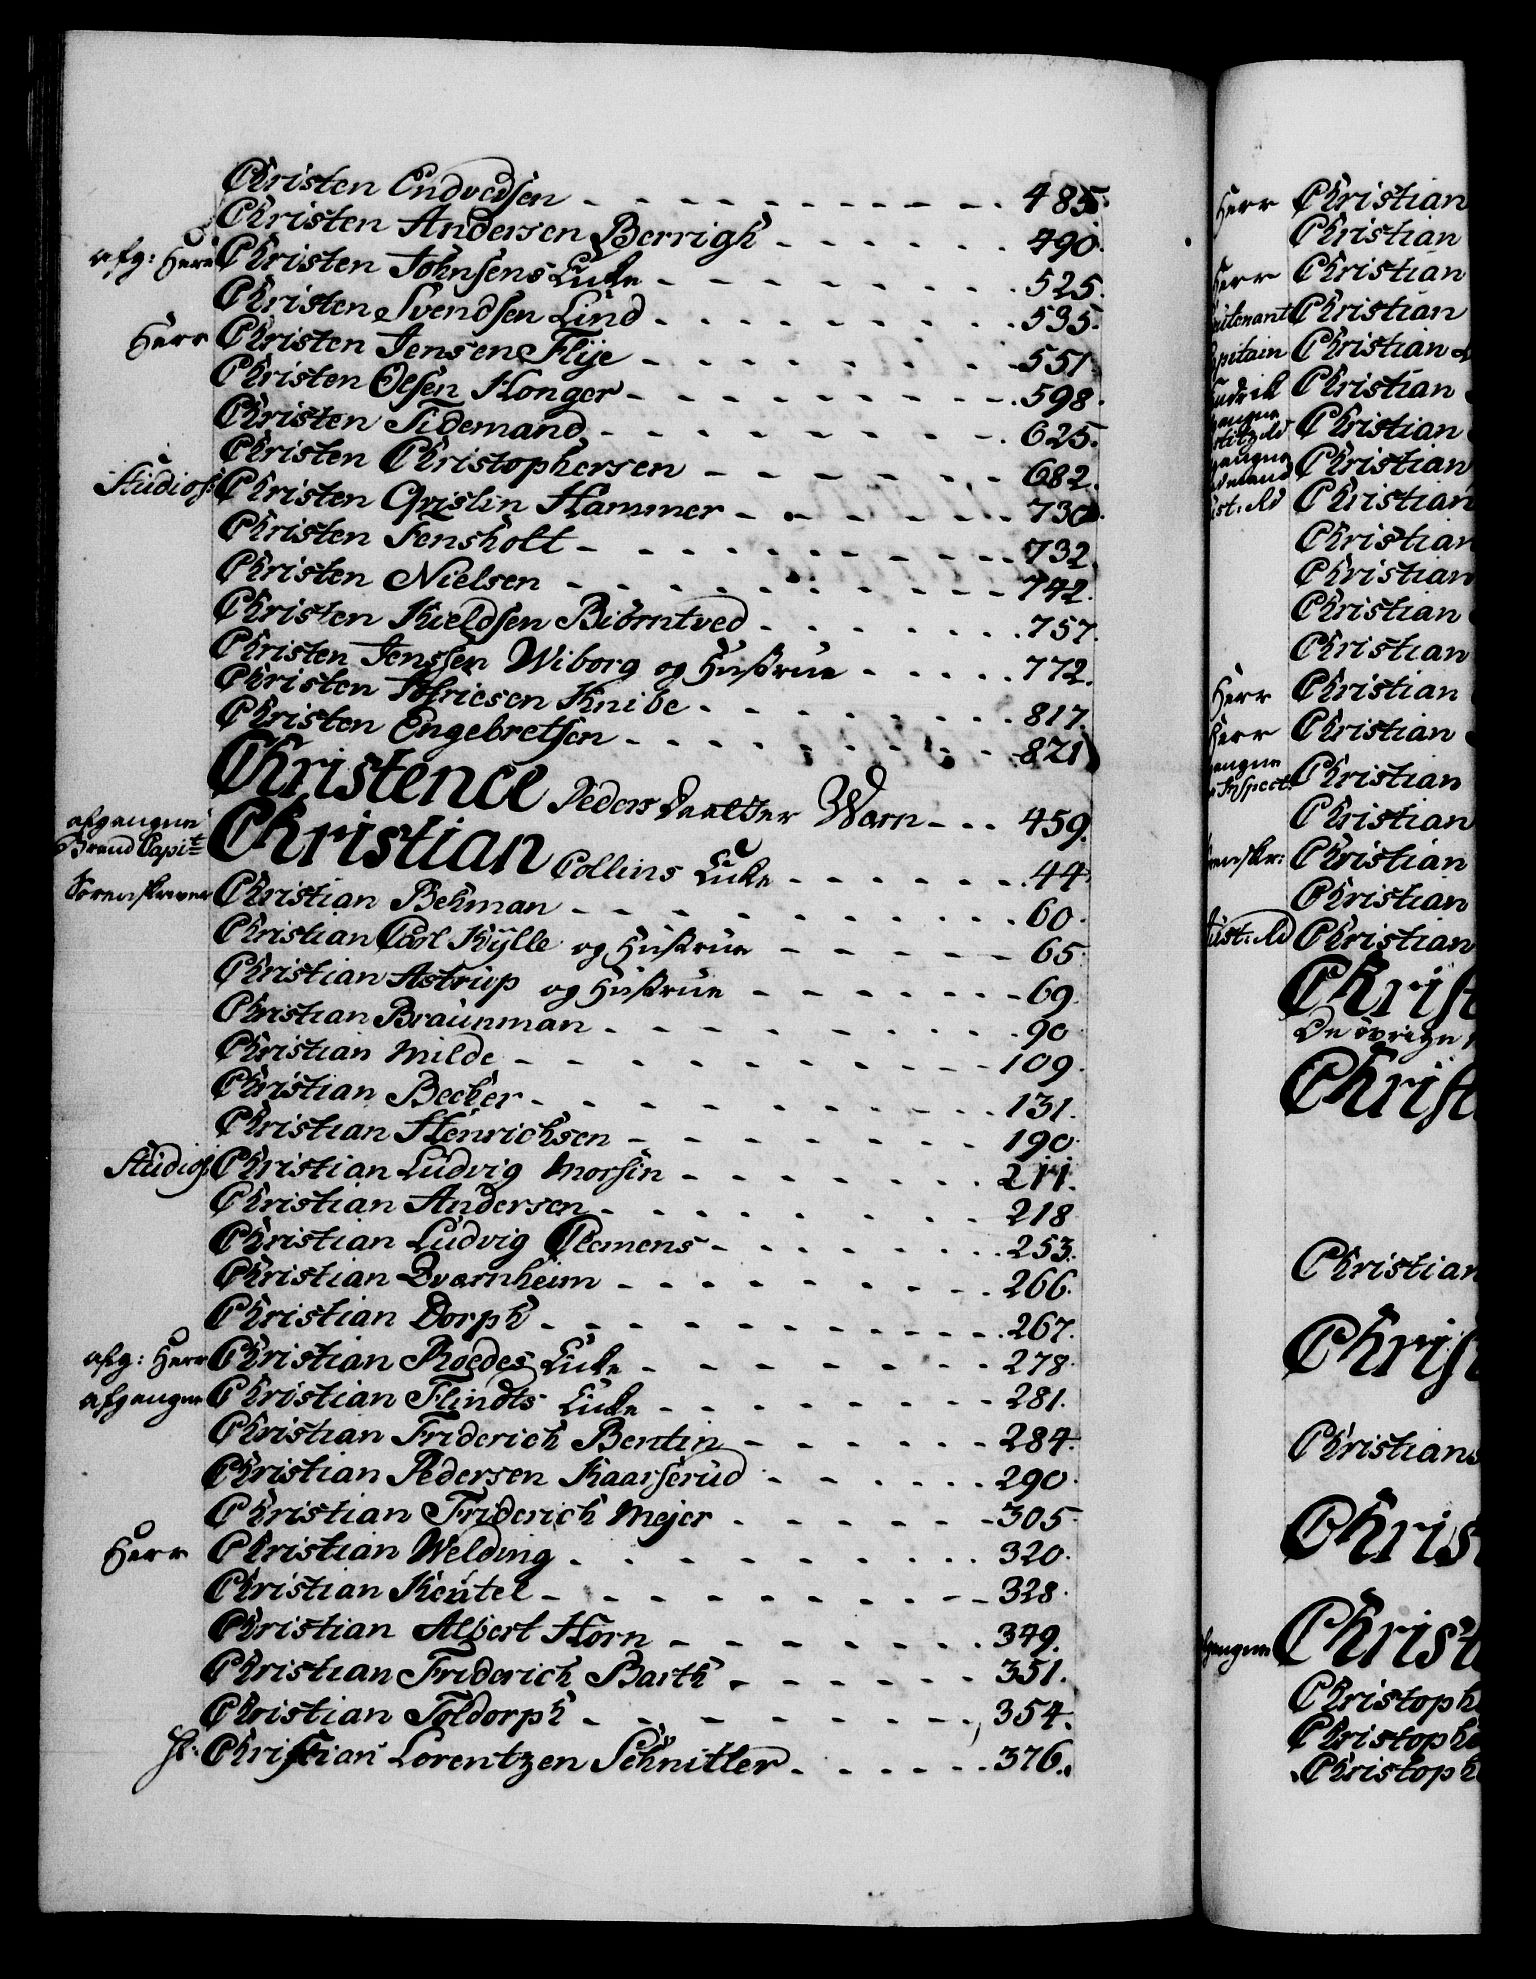 Christen Endvedsen - - - - - - - - - - - 485.
Christen Andersen Berrigh - - - - - - 490.
afg: Herr Christen Johnsens Enke - - - - - - - - 525.
Christen Svendsen Lind - - - - - - - - 535.
Herr Christen Jensen Flÿe - - - - - - - - 551.
Christen Olsen Konger - - - - - - - - - 598.
Christen Tidemand - - - - - - - - - 625.
Christen Christophersen - - - - - - - 682.
Studios: Christen Qrislin Hammer - - - - - - - 730.
Christen Fensholt - - - - - - - - - - - 732.
Christen Nielsen - - - - - - - - - - - 742.
Christen Kieldsen Biörntved - - - - - - - 757.
Christen Jenssen Wiborg og Hustrue - - - - - 772.
Christen Knibe - - - - - - - - - 817.
Christen Engebretsen - - - - - - - - - 821.
Christence Peders Daatter Warn - - - 459.
afgangne Brand Capit: Christian Collins Enke - - - - - - - 44.
Sorenskriver Christian Behman - - - - - - - - - - 60.
Christian Carl Kÿlle og Hustrue - - - - - - 65.
Christian Astrup og Hustrue - - - - - - - 69.
Christian Braunman - - - - - - - - - 90
Christian Milde - - - - - - - - - - - 109.
Christian Becker - - - - - - - - - - - 131.
Christian Henrichsen - - - - - - - - 190
Studios: Christian Ludvig Morsin - - - - - - - 211.
Christian Andersen - - - - - - - - - 218
Christian Ludvig Clemens - - - - - - - 253.
Christian Dvarnheim - - - - - - - - - 266.
Christian Dorph - - - - - - - - - - - 267.
afg: Herr Christian Roedes Enke - - - - - - - - 278.
afgangne Christian Flindts Enke - - - - - - - - 281.
Christian Friderich Bentin - - - - - - 284.
Christian Pedersen Kaarserud - - - - - 290.
Christian Friderich Mejer - - - - - - 305.
Herr Christian Welding - - - - - - - - - 320.
Christian Keutel - - - - - - - - - - - 328.
Christian Albert Horn - - - - - - - - 349.
Christian Friderich Barth - - - - - - 351.
Christian Toldorph - - - - - - - - - 354.
Hr. Christian Lorentzen Schnitler - - - - - - 376.
Herr Christian
Christian
Herr Christian
Christian
Christian
Christian
Christian
Christian
Christian
Christian
Christian
Christian
Christian
Herr Christian
Herr Christian
Christian
Christian
Christian
Christian
Christian
Christ
De övrige
Christ
Christian
Christ
Christians
Christ
Christ
Christoph
Christoph
Christoph